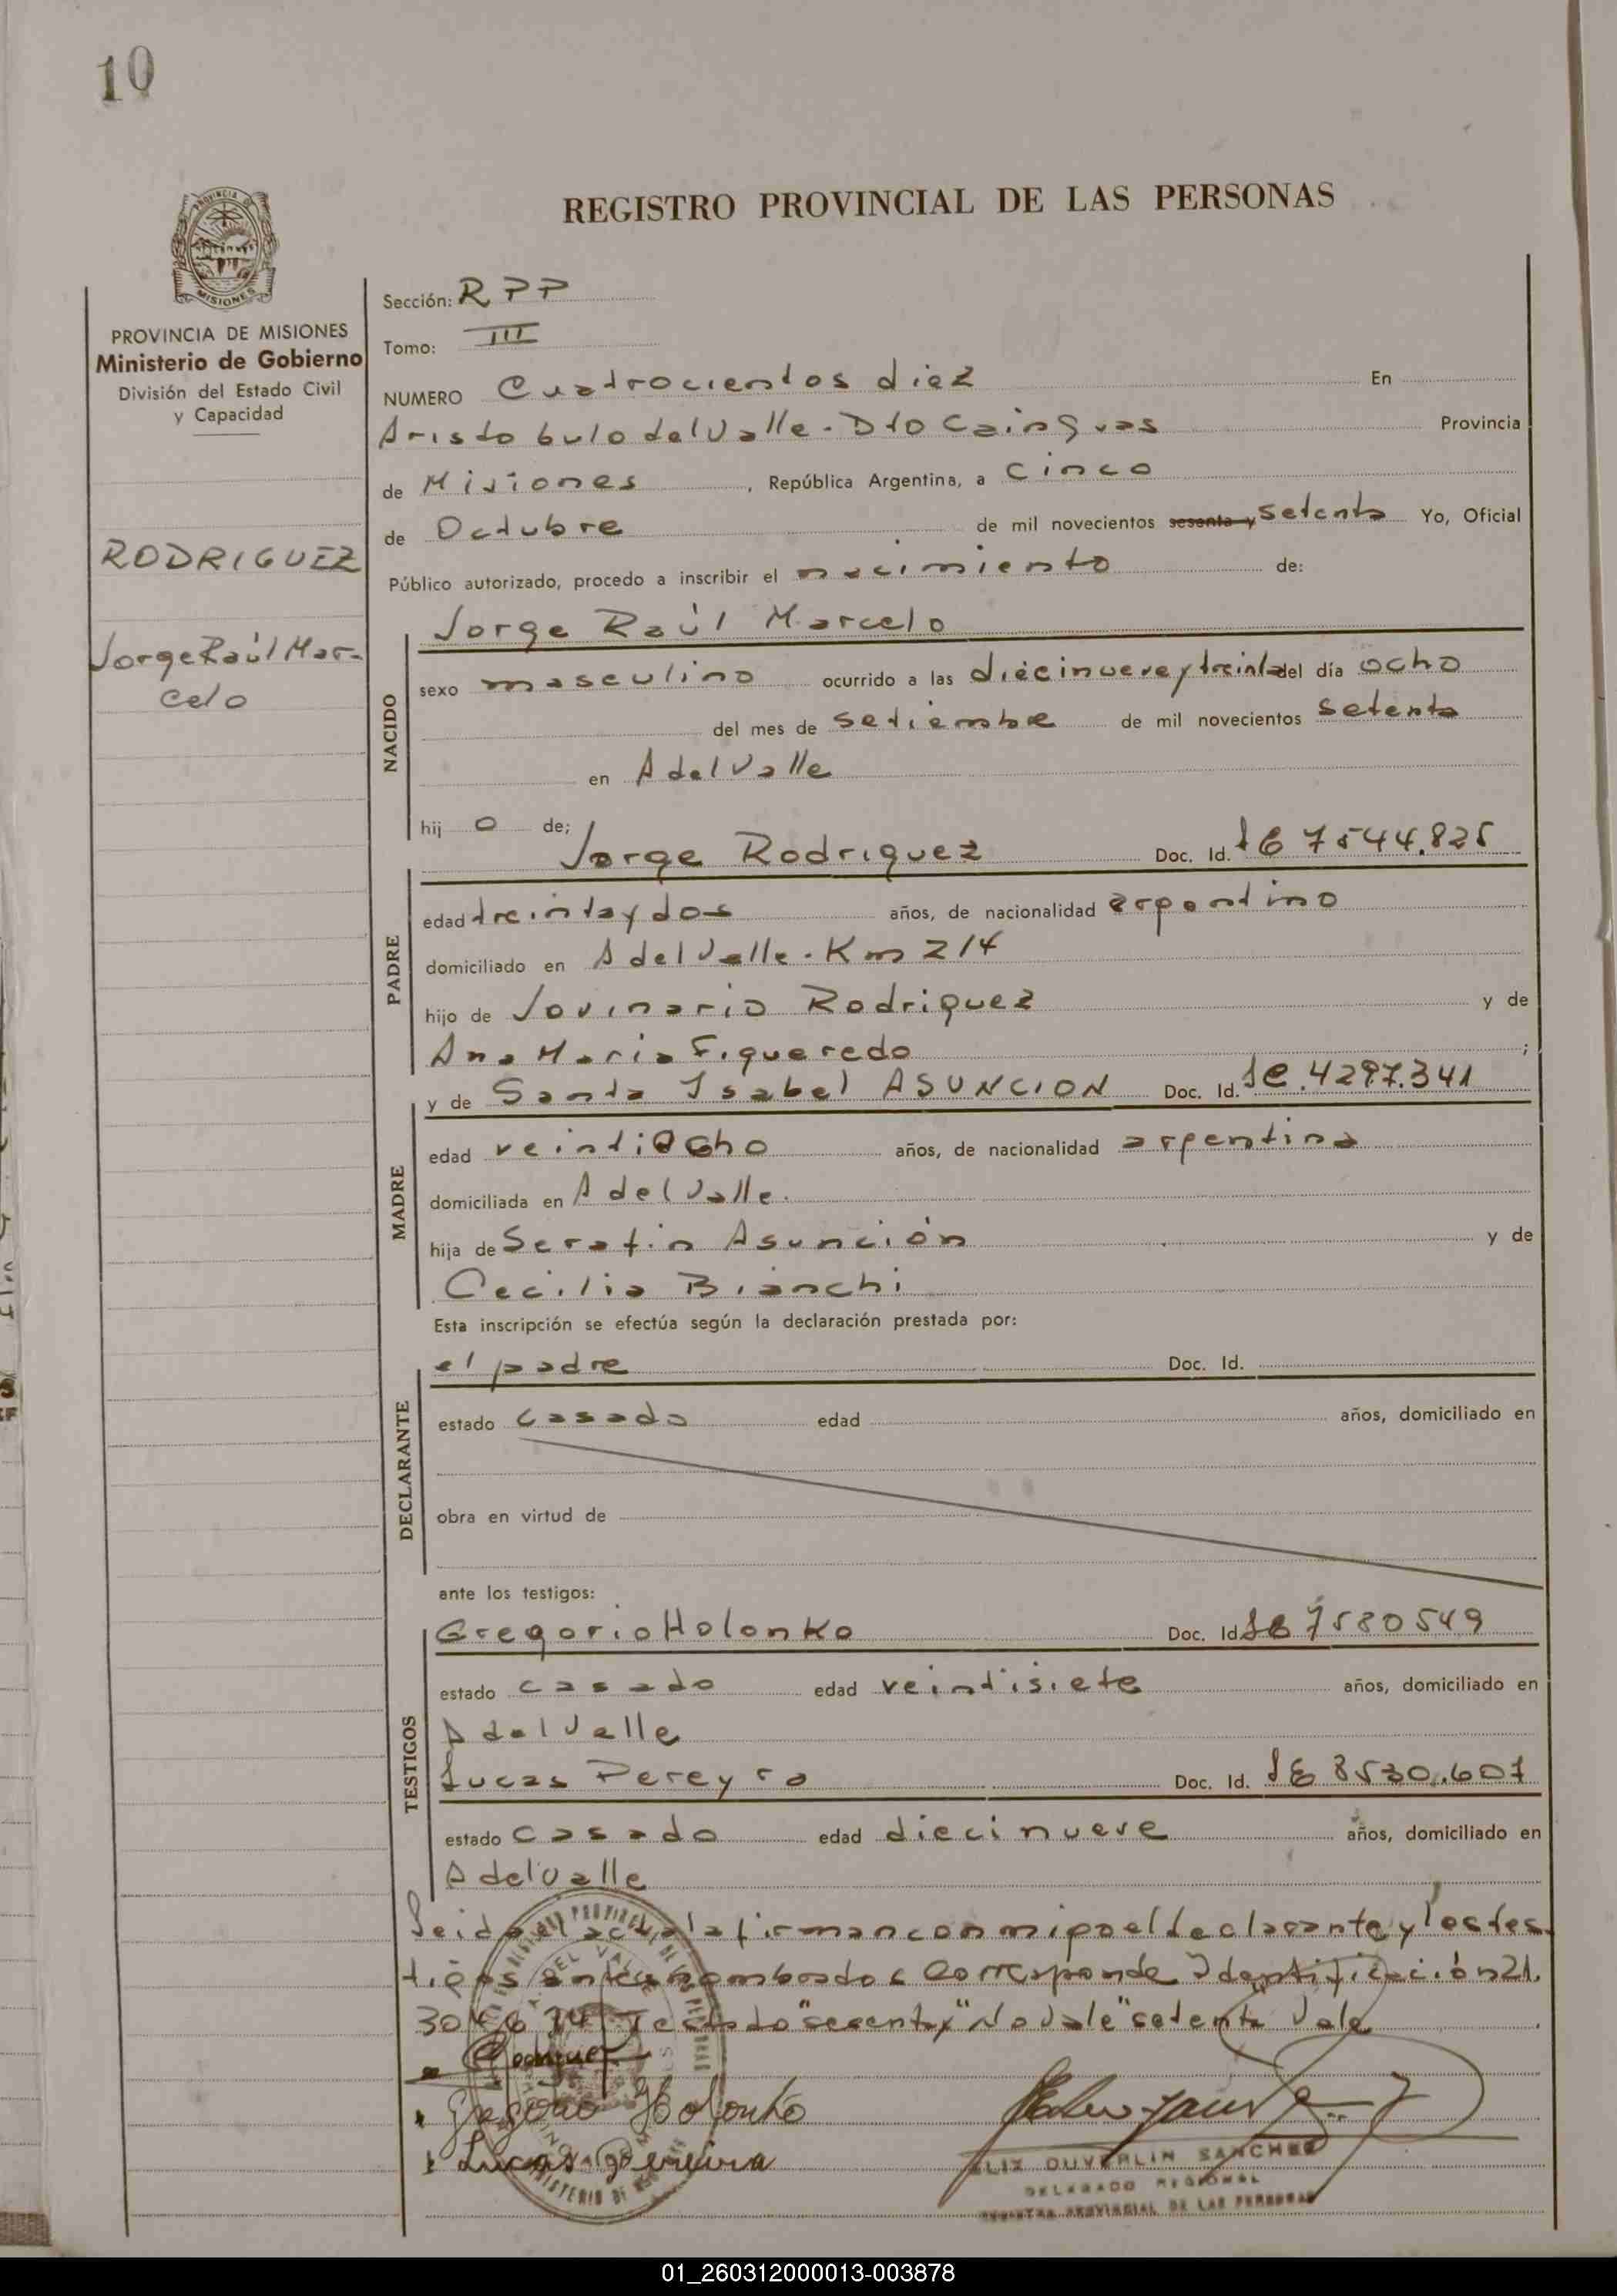 10
REGISTRO PROVINCIAL DE LAS PERSONAS
PROVINCIA DE MISIONES
Ministerio de Gobierno
División del Estado Civil
y Capacidad
RODRIGUEZ
Jorge Raúl Mar-
celo
Sección: RPP
Tomo: III
NUMERO Cuatrocientos diez En
Aristobulo del Valle - Dto Cainguas Provincia
de Misiones, República Argentina, a Cinco
de Octubre de mil novecientos sesenta y Setenta Yo, Oficial
Público autorizado, procedo a inscribir el nacimiento de:
Jorge Raúl Marcelo
NACIDO
sexo masculino ocurrido a las diecinueve y treinta del día ocho
del mes de Setiembre de mil novecientos Setenta
en A del Valle
hij o de;
Jorge Rodriguez Doc. Id. LE 7544.825
PADRE
edad treinta y dos años, de nacionalidad argentino
domiciliado en A del Valle - Km 214
hijo de Jovinario Rodriguez y de
Ana Maria Figueredo ;
y de Santa Isabel ASUNCION Doc. Id. LC. 4297.341
MADRE
edad veintiocho años, de nacionalidad argentina
domiciliada en A del Valle.
hija de Serafin Asunción y de
Cecilia Bianchi
Esta inscripción se efectúa según la declaración prestada por:
el padre Doc. Id.
DECLARANTE
estado casado edad años, domiciliado en
obra en virtud de
ante los testigos:
Gregorio Holonko Doc. Id. LE 7580549
TESTIGOS
estado casado edad veintisiete años, domiciliado en
A del Valle
Lucas Pereyra Doc. Id. LE 8530.607
estado casado edad diecinueve años, domiciliado en
A del Valle
Leida el acta la firman conmigo el declarante y los tes-
tigos antes nombrados Corresponde Identificación 21.
Testado "sesenta y" No Vale "setenta Vale
Rodriguez
Gregorio Holonko
Lucas Pereira
DUVERLIN SANCHEZ
DELEGADO REGIONAL
REGISTRO PROVINCIAL DE LAS PERSONAS
01_260312000013-003878